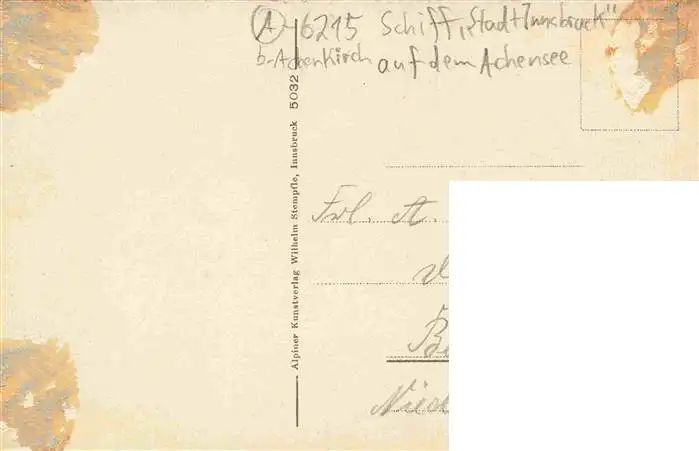 (A)-6215 Schiff „Stadt Innsbruck"
b-Achenkirch auf dem Achensee
Alpiner Kunstverlag Wilhelm Stempfle, Innsbruck 5032
Frl. A.